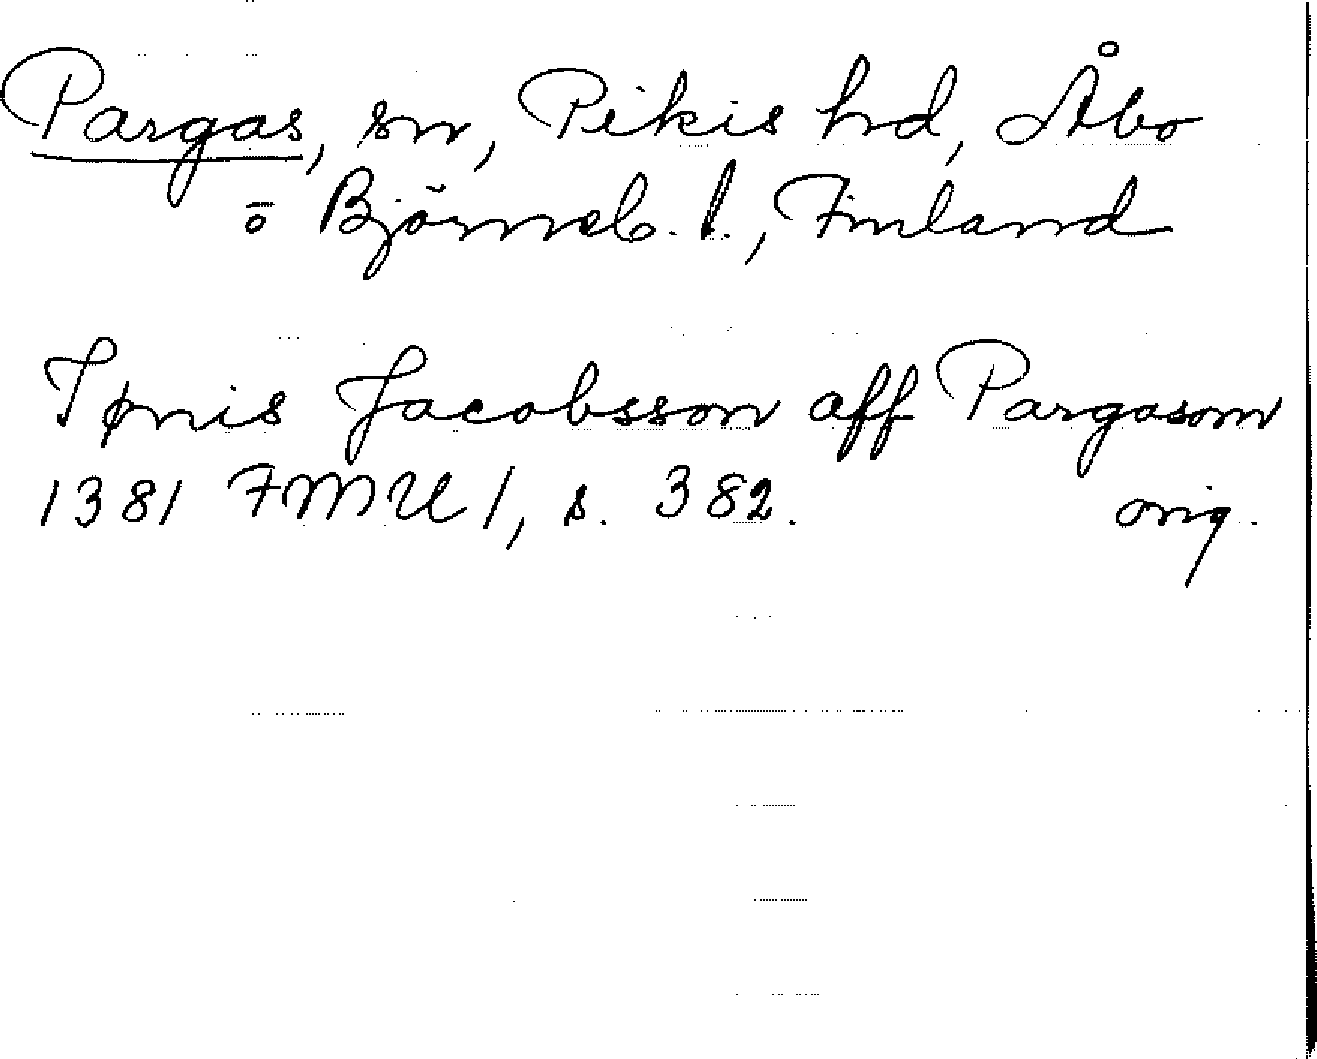 Pargas, sn, Pikis hd, Åbo
o Björneb. l., Finland
Tønis Jacobsson aff Pargasom
1381 FMU 1, s. 382. orig.